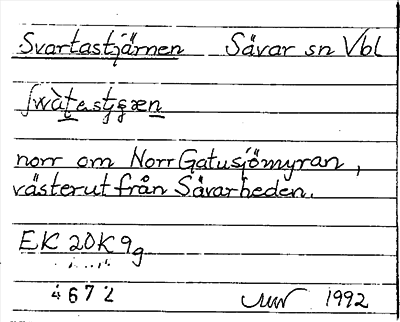 Svartastjärnen Sävar sn Vbl
norr om Norr Gatusjömyran,
västerut från Sävarheden.
EK 20K 9g
4672 1992